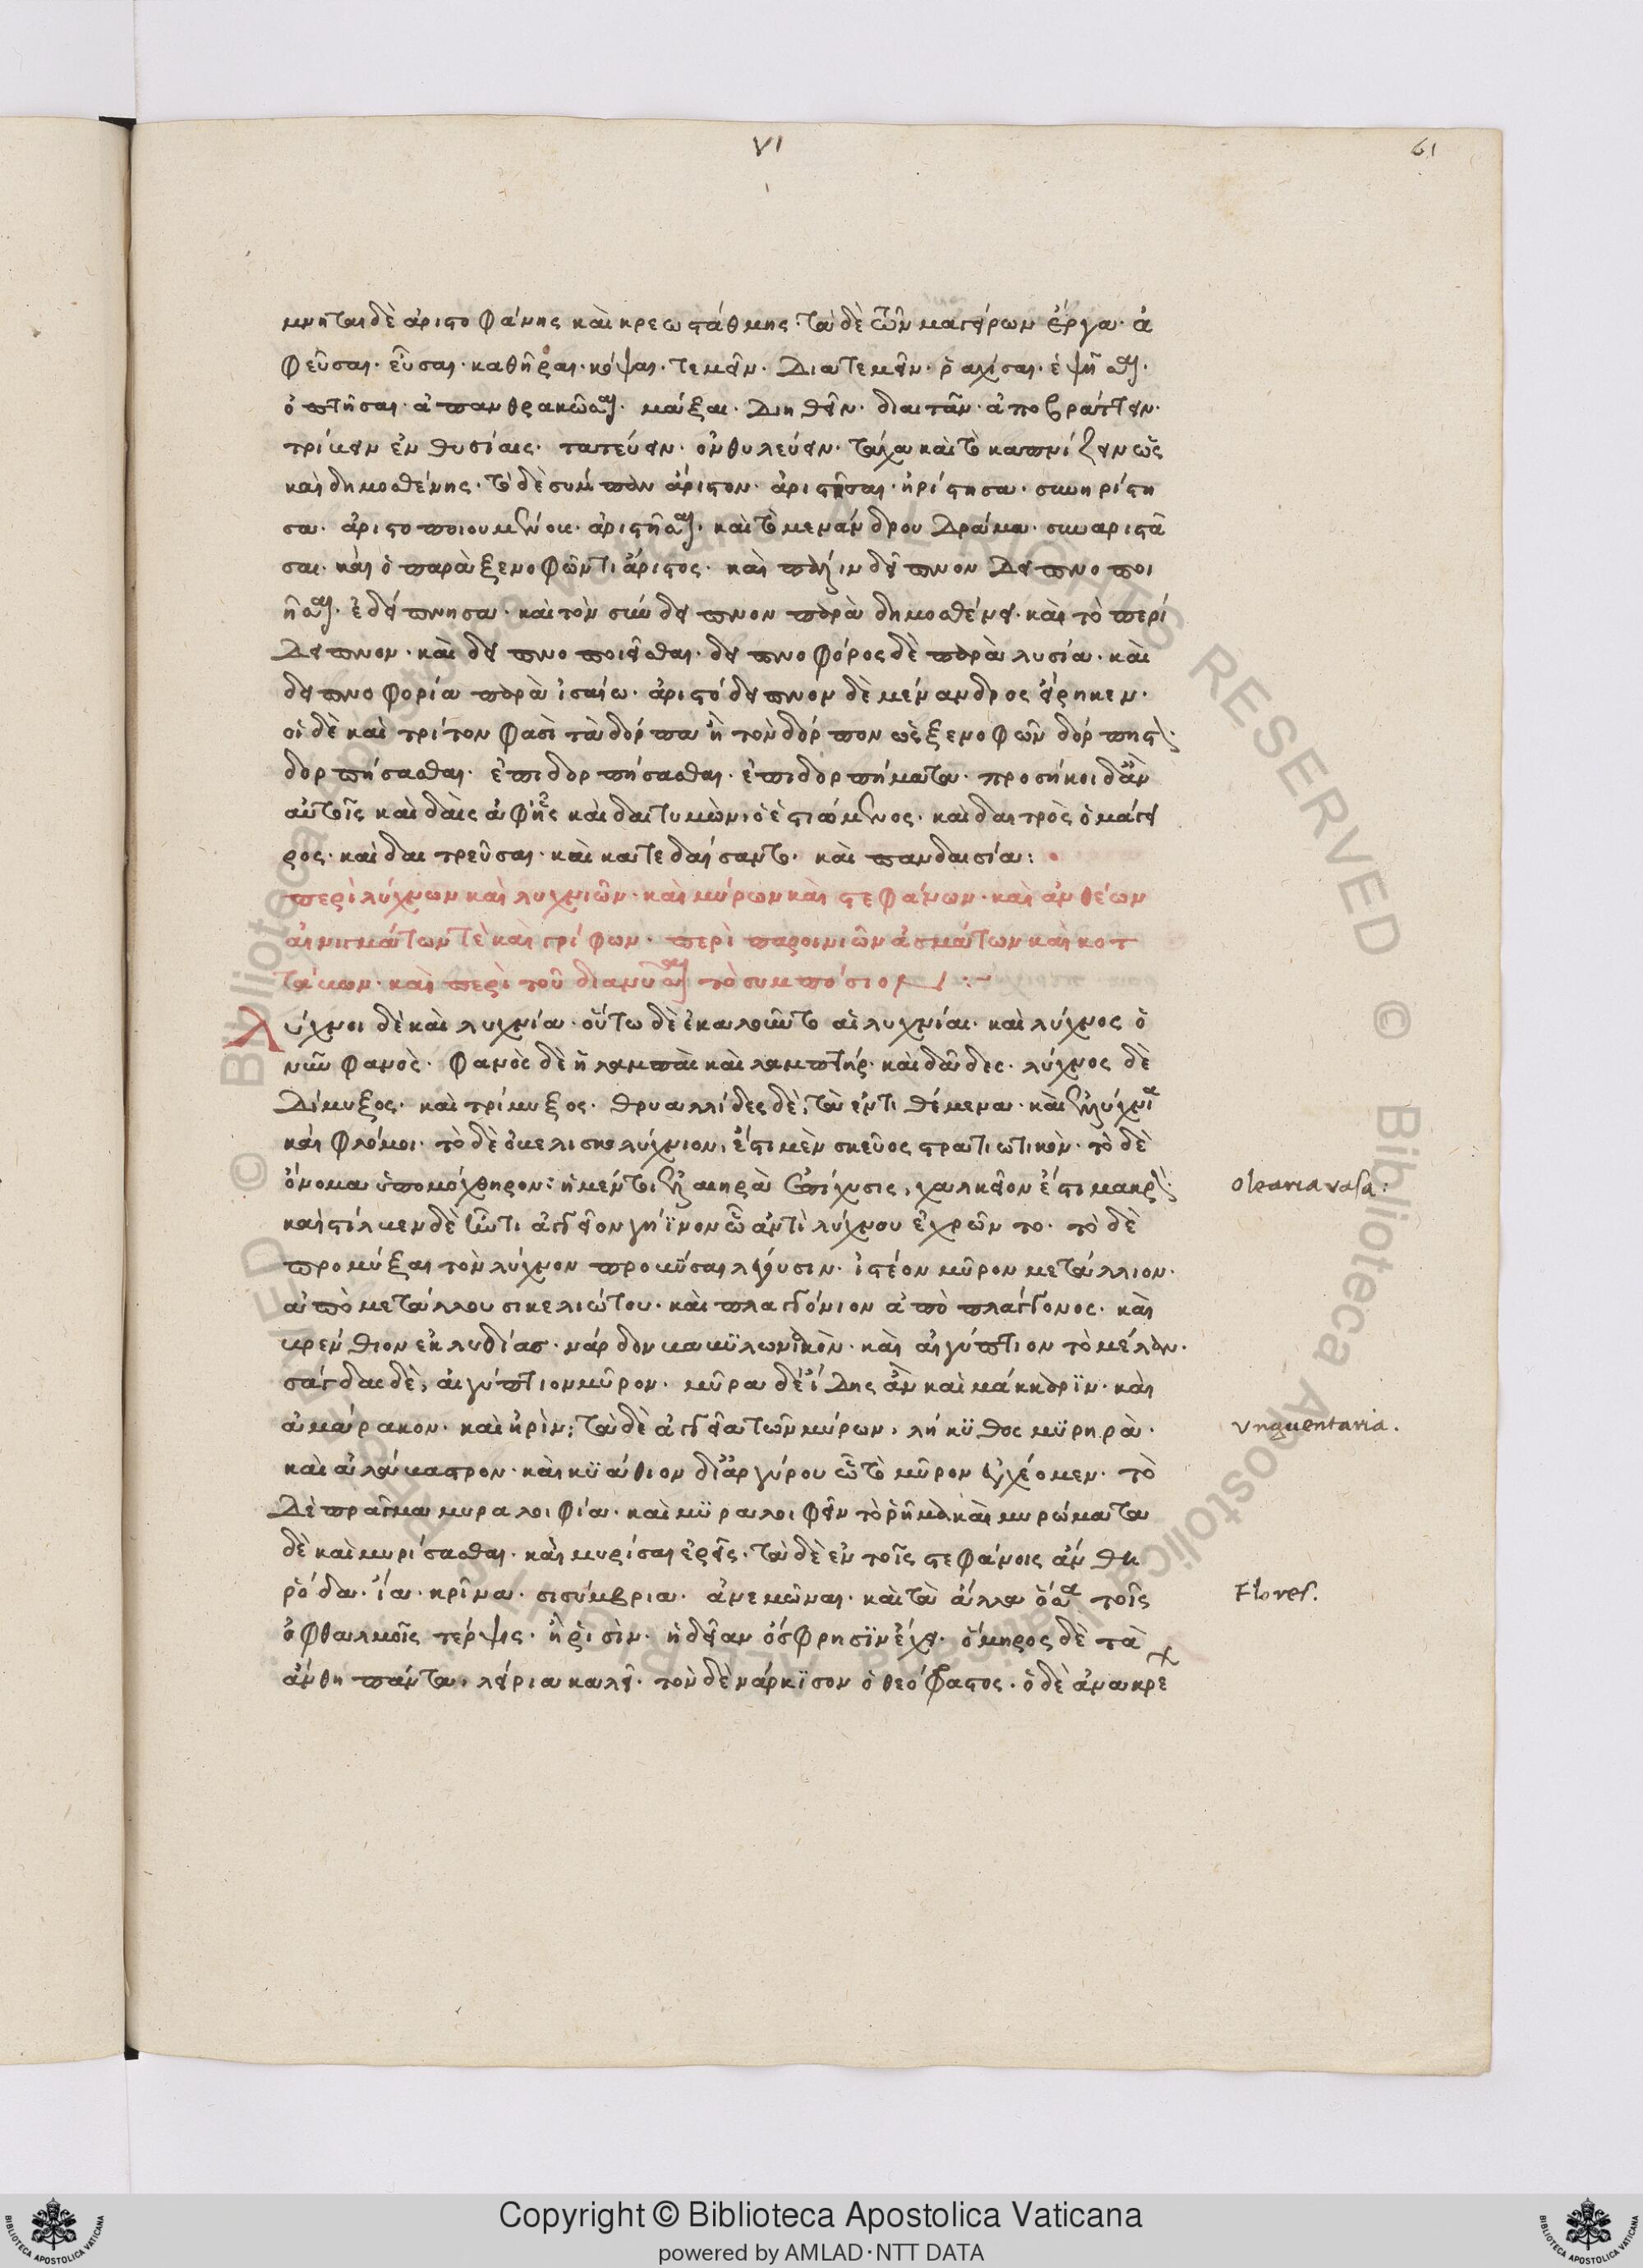 VI
61
μνηται δὲ ἀριστοφάνης καὶ κρεωστάθμης· τὰ δὲ τῶν μαγείρων ἔργα· ἀ
φεῦσαι· εὖσαι· καθῆραι· κόψαι· τεμεῖν· διατεμεῖν· ῥαχίσαι· ἑψῆσαι·
ὀπτῆσαι· ἀπανθρακῶσαι· μάξαι· διηθεῖν· διαιτᾶν· ἀποβράττειν·
τρίβειν ἐν θυείαις· ταγεύειν· ὀνθυλεύειν· τάχα καὶ τὸ καπνίζειν ὡς
καὶ δημοσθένης· τὸ δὲ σύμπαν ἄριστον· ἀριστῆσαι· ἠρίστησα· συνηρίστη
σα· ἀριστοποιουμένοις· ἀριστῆσαι· καὶ τὸ μενάνδρου δρᾶμα· συναριστῶ
σαι· καὶ ὁ παρὰ ξενοφῶντι ἄριστος· καὶ πάλιν δεῖπνον δειπνοποι
ῆσαι· ἐδείπνησα· καὶ τὸν σύνδειπνον παρὰ δημοσθένει· καὶ τὸ περί
δειπνον· καὶ δειπνοποιεῖσθαι· δειπνοφόρος δὲ παρὰ λυσία· καὶ
δειπνοφορία παρὰ ἰσαίω· ἀριστόδειπνον δὲ μένανδρος εἴρηκεν·
οἱ δὲ καὶ τρίτον φασὶ τὰ δόρπα ἢ τὸν δόρπον ὡς ξενοφῶν δορπηστ
δορπήσασθαι· ἐπιδορπήσασθαι· ἐπιδορπήματα· προσήκοι δ' ἂν
αὐτοῖς καὶ δαὶς ἀφ' ἧς καὶ δαιτυμὼν ὁ ἑστιώμενος· καὶ δαιτρὸς ὁ μάγει
ρος· καὶ δαιτρεῦσαι· καὶ κατεδαίσαντο· καὶ πανδαισία:
περὶ λύχνων καὶ λυχνιῶν· καὶ μύρων καὶ στεφάνων· καὶ ἀνθέων
αἰνιγμάτων τὲ καὶ γρίφων· περὶ παροινιῶν ἀσμάτων καὶ κοτ
τάβων· καὶ περὶ τοῦ διαλῦσαι τὸ συμπόσιον :-
λύχνοι δὲ καὶ λυχνία· οὕτω δὲ ἐκαλοῦντο αἱ λυχνίαι· καὶ λύχνος ὁ
νῦν φανὸς· φανὸς δὲ ἡ λαμπὰς καὶ λαμπτήρ· καὶ δᾶδες· λύχνος δὲ
δίμυξος· καὶ τρίμυξος· θρυαλλίδες δὲ, τὰ ἐντιθέμενα· καὶ ἐλλύχνια
καὶ φλόμοι· τὸ δὲ ὀβελισκολύχνιον, ἔστι μὲν σκεῦος στρατιωτικὸν· τὸ δὲ
ὄνομα ὑπομόχθηρον: ἡ μέντοι ἐλαιηρὰ ἐπίχυσις, χαλκεῖον ἐστι μακρ
Olearia vasa:
καὶ στίλβην δὲ ἔστι ἀγγεῖον γήϊνον ᾧ ἀντὶ λύχνου ἐχρῶντο· τὸ δὲ
προμύξαι τὸν λύχνον προβῦσαι λέγουσιν· ἰστέον μῦρον μετάλλιον·
ἀπὸ μετάλλου σικελιώτου· καὶ πλαγγόνιον ἀπὸ πλαγγόνος· καὶ
βρένθιον ἐκ λυδίας· νάρδον βαβυλωνικὸν· καὶ αἰγύπτιον τὸ μέλαν·
σάγδας δὲ, αἰγύπτιον μῦρον· μῦρα δ' εἴδης ἂν καὶ βάκκαριν· καὶ
ἀμάρακον· καὶ ἠρὶν: τὰ δὲ ἀγγεῖα τῶν μύρων, λήκυθος μυρηρὰ·
Vnguentaria.
καὶ ἀλάβαστρον· καὶ κυάθιον δι' ἀργύρου ᾧ τὸ μῦρον ἐγχέομεν· τὸ
δὲ πρᾶγμα μυραλοιφία· καὶ μυραλοιφεῖν τὸ ῥῆμα καὶ μυρώματα
δὲ καὶ μυρίσασθαι· καὶ μυρίσαι ἐρεῖς· τὰ δὲ ἐν τοῖς στεφάνοις ἄνθη
ῥόδα· ἴα· κρῖνα· σισύμβρια· ἀνεμῶναι· καὶ τὰ ἄλλα ὅσα τοῖς
Flores.
ὀφθαλμοῖς τέρψις· ἢ ῥισὶν· ἡδεῖαν ὄσφρησιν ἔχει· ὅμηρος δὲ τὰ
ἄνθη πάντα, λείρια καλεῖ· τὸν δὲ νάρκισον ὁ θεόφραστος· ὁ δὲ ἀνακρε
Copyright © Biblioteca Apostolica Vaticana
powered by AMLAD·NTT DATA